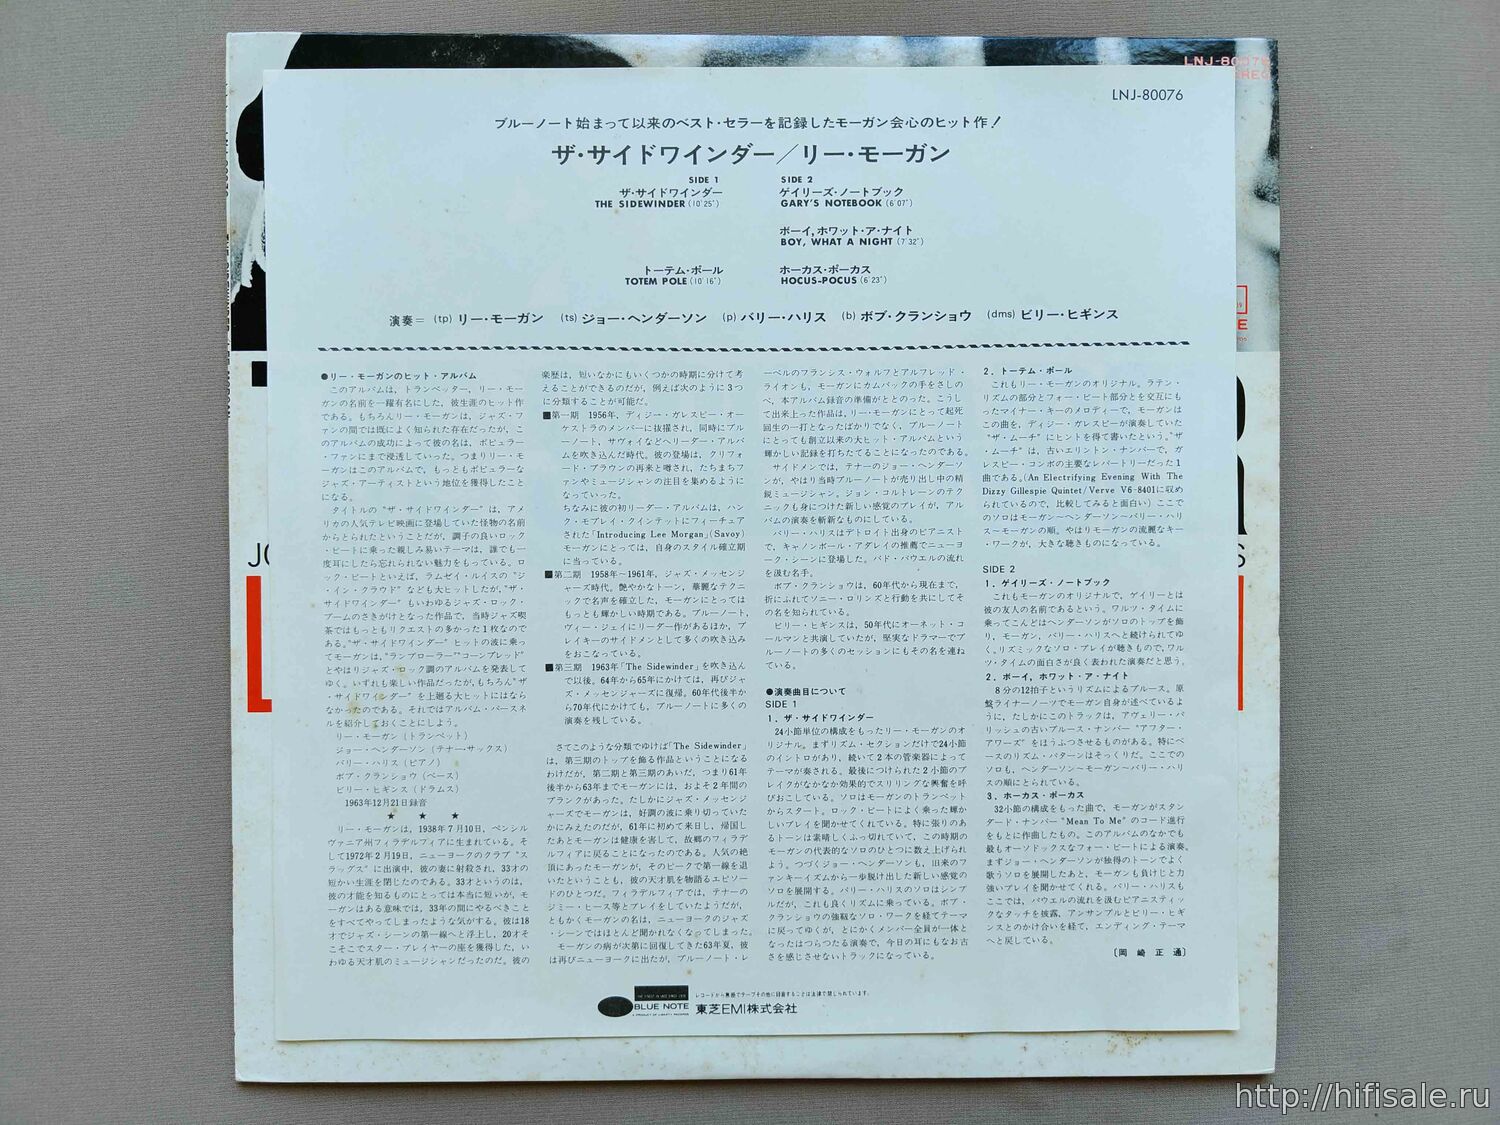 LNJ-80076
ブルーノート始まって以来のベスト・セラーを記録したモーガン会心のヒット作！
ザ・サイドワインダー／リー・モーガン
SIDE 1
ザ・サイドワインダー
THE SIDEWINDER (10'25")
トーテム・ポール
TOTEM POLE (10'16")
SIDE 2
ゲイリーズ・ノートブック
GARY'S NOTEBOOK (6'07")
ボーイ, ホワット・ア・ナイト
BOY, WHAT A NIGHT (7'32")
ホーカス・ポーカス
HOCUS-POCUS (6'23")
演奏＝ (tp) リー・モーガン (ts) ジョー・ヘンダーソン (p) バリー・ハリス (b) ボブ・クランショウ (dms) ビリー・ヒギンス
●リー・モーガンのヒット・アルバム
このアルバムは，トランペッター，リー・モー
ガンの名前を一躍有名にした，彼生涯のヒット作
である。もちろんリー・モーガンは，ジャズ・フ
ァンの間では既によく知られた存在だったが，こ
のアルバムの成功によって彼の名は，ポピュラー
・ファンにまで浸透していった。つまりリー・モ
ーガンはこのアルバムで，もっともポピュラーな
ジャズ・アーティストという地位を獲得したこと
になる。
タイトルの“ザ・サイドワインダー”は，アメ
リカの人気テレビ映画に登場していた怪物の名前
からとられたということだが，調子の良いロック
・ビートに乗った親しみ易いテーマは，誰でも一
度耳にしたら忘れられない魅力をもっている。ロ
ック・ビートといえば，ラムゼイ・ルイスの“ジ
・イン・クラウド”なども大ヒットしたが，“ザ・
サイドワインダー”もいわゆるジャズ・ロック・
ブームのさきがけとなった作品で，当時ジャズ喫
茶ではもっともリクエストの多かった1枚なので
ある。“ザ・サイドワインダー”ヒットの波に乗っ
てモーガンは，“ランプローラー”“コーンブレッド”
とやはりジャズ・ロック調のアルバムを発表して
ゆく。いずれも楽しい作品だったが，もちろん“ザ
・サイドワインダー”を上廻る大ヒットにはなら
なかったのである。それではアルバム・パースネ
ルを紹介しておくことにしよう。
リー・モーガン（トランペット）
ジョー・ヘンダーソン（テナー・サックス）
バリー・ハリス（ピアノ）
ボブ・クランショウ（ベース）
ビリー・ヒギンス（ドラムス）
1963年12月21日録音
★ ★ ★
リー・モーガンは，1938年7月10日，ペンシル
ヴァニア州フィラデルフィアに生まれている。そ
して1972年2月19日，ニューヨークのクラブ“ス
ラッグス”に出演中，彼の妻に射殺され，33才の
短かい生涯を閉じたのである。33才というのは，
彼の才能を知るものにとっては本当に短いが，モ
ーガンはある意味では，33年の間にやるべきこと
をすべてやってしまったような気がする。彼は18
才でジャズ・シーンの第一線へと浮上し，20才そ
こそこでスター・プレイヤーの座を獲得した，い
わゆる天才肌のミュージシャンだったのだ。彼の
楽歴は，短いなかにもいくつかの時期に分けて考
えることができるのだが，例えば次のように3つ
に分類することが可能だ。
■第一期 1956年，ディジー・ガレスピー・オー
ケストラのメンバーに抜擢され，同時にブル
ーノート，サヴォイなどへリーダー・アルバ
ムを吹き込んだ時代。彼の登場は，クリフォ
ード・ブラウンの再来と噂され，たちまちフ
ァンやミュージシャンの注目を集めるように
なっていった。
ちなみに彼の初リーダー・アルバムは，ハン
ク・モブレイ・クインテットにフィーチュア
された「Introducing Lee Morgan」(Savoy)
モーガンにとっては，自身のスタイル確立期
に当っている。
■第二期 1958年〜1961年，ジャズ・メッセンジ
ャーズ時代。艶やかなトーン，華麗なテクニ
ックで名声を確立した，モーガンにとっては
もっとも輝かしい時期である。ブルーノート，
ヴィー・ジェイにリーダー作があるほか，ブ
レイキーのサイドメンとして多くの吹き込み
をおこなっている。
■第三期 1963年「The Sidewinder」を吹き込ん
で以後。64年から65年にかけては，再びジャ
ズ・メッセンジャーズに復帰。60年代後半か
ら70年代にかけても，ブルーノートに多くの
演奏を残している。
さてこのような分類でゆけば「The Sidewinder」
は，第三期のトップを飾る作品ということになる
わけだが，第二期と第三期のあいだ，つまり61年
後半から63年までモーガンには，およそ2年間の
ブランクがあった。たしかにジャズ・メッセンジ
ャーズでモーガンは，好調の波に乗り切っていた
かにみえたのだが，61年に初めて来日し，帰国し
たあとモーガンは健康を害して，故郷のフィラデ
ルフィアに戻ることになったのである。人気の絶
頂にあったモーガンが，そのピークで第一線を退
いたということも，彼の天才肌を物語るエピソー
ドのひとつだ。フィラデルフィアでは，テナーの
ジミー・ヒース等とプレイをしていたようだが，
ともかくモーガンの名は，ニューヨークのジャズ
・シーンではほとんど聞かれなくなってしまった。
モーガンの病が次第に回復してきた63年夏，彼
は再びニューヨークに出たが，ブルーノート・レ
ーベルのフランシス・ウォルフとアルフレッド・
ライオンも，モーガンにカムバックの手をさしの
べ，本アルバム録音の準備がととのった。こうし
て出来上った作品は，リー・モーガンにとって起死
回生の一打となったばかりでなく，ブルーノート
にとっても創立以来の大ヒット・アルバムという
輝かしい記録を打ちたてることになったのである。
サイドメンでは，テナーのジョー・ヘンダーソ
ンが，やはり当時ブルーノートが売り出し中の精
鋭ミュージシャン。ジョン・コルトレーンのテク
ニックも身につけた新しい感覚のプレイが，アル
バムの演奏を斬新なものにしている。
バリー・ハリスはデトロイト出身のピアニスト
で，キャノンボール・アダレイの推薦でニューヨ
ーク・シーンに登場した。バド・パウエルの流れ
を汲む名手。
ボブ・クランショウは，60年代から現在まで，
折にふれてソニー・ロリンズと行動を共にしてそ
の名を知られている。
ビリー・ヒギンスは，50年代にオーネット・コ
ールマンと共演していたが，堅実なドラマーでブ
ルーノートの多くのセッションにもその名を連ね
ている。
●演奏曲目について
SIDE 1
1．ザ・サイドワインダー
24小節単位の構成をもったリー・モーガンのオ
リジナル。まずリズム・セクションだけで24小節
のイントロがあり，続いて2本の管楽器によって
テーマが奏される。最後につけられた2小節のブ
レイクがなかなか効果的でスリリングな興奮を呼
びおこしている。ソロはモーガンのトランペット
からスタート。ロック・ビートによく乗った輝か
しいプレイを聞かせてくれている。特に張りのあ
るトーンは素晴しくふっ切れていて，この時期の
モーガンの代表的なソロのひとつに数え上げられ
よう。つづくジョー・ヘンダーソンも，旧来のフ
ァンキーイズムから一歩脱け出した新しい感覚の
ソロを展開する。バリー・ハリスのソロはシンプ
ルだが，これも良くリズムに乗っている。ボブ・
クランショウの強靱なソロ・ワークを経てテーマ
に戻ってゆくが，とにかくメンバー全員が一体と
なったはつらつたる演奏で，今日の耳にもなお古
さを感じさせないトラックになっている。
2．トーテム・ポール
これもリー・モーガンのオリジナル。ラテン・
リズムの部分とフォー・ビート部分とを交互にも
ったマイナー・キーのメロディーで，モーガンは
この曲を，ディジー・ガレスピーが演奏していた
“ザ・ムーチ”にヒントを得て書いたという。“ザ
・ムーチ”は，古いエリントン・ナンバーで，ガ
レスピー・コンボの主要なレパートリーだった1
曲である。(An Electrifying Evening With The
Dizzy Gillespie Quintet / Verve V6-8401に収め
られているので，比較してみると面白い）ここで
のソロはモーガン〜ヘンダーソン〜バリー・ハリ
ス〜モーガンの順。やはりモーガンの流麗なキー
・ワークが，大きな聴きものになっている。
SIDE 2
1．ゲイリーズ・ノートブック
これもモーガンのオリジナルで，ゲイリーとは
彼の友人の名前であるという。ワルツ・タイムに
乗ってこんどはヘンダーソンがソロのトップを飾
り，モーガン，バリー・ハリスへと続けられてゆ
く。リズミックなソロ・プレイが聴きもので，ワル
ツ・タイムの面白さが良く表われた演奏だと思う。
2．ボーイ，ホワット・ア・ナイト
8分の12拍子というリズムによるブルース。原
盤ライナーノーツでモーガン自身が述べているよ
うに，たしかにこのトラックは，アヴェリー・パ
リッシュの古いブルース・ナンバー“アフター・
アワーズ”をほうふつさせるものがある。特にベ
ースのリズム・パターンはそっくりだ。ここでの
ソロも，ヘンダーソン〜モーガン〜バリー・ハリ
スの順にとられている。
3．ホーカス・ポーカス
32小節の構成をもった曲で，モーガンがスタン
ダード・ナンバー“Mean To Me”のコード進行
をもとに作曲したもの。このアルバムのなかでも
最もオーソドックスなフォー・ビートによる演奏。
まずジョー・ヘンダーソンが独得のトーンでよく
歌うソロを展開したあと，モーガンも負けじと力
強いプレイを聞かせてくれる。バリー・ハリスも
ここでは，パウエルの流れを汲むピアニスティッ
クなタッチを披露，アンサンブルとビリー・ヒギ
ンスとのかけ合いを経て，エンディング・テーマ
へと戻している。
〔岡崎正通〕
BLUE NOTE
レコードから無断でテープその他に録音することは法律で禁じられています。
東芝EMI株式会社
http://hifisale.ru